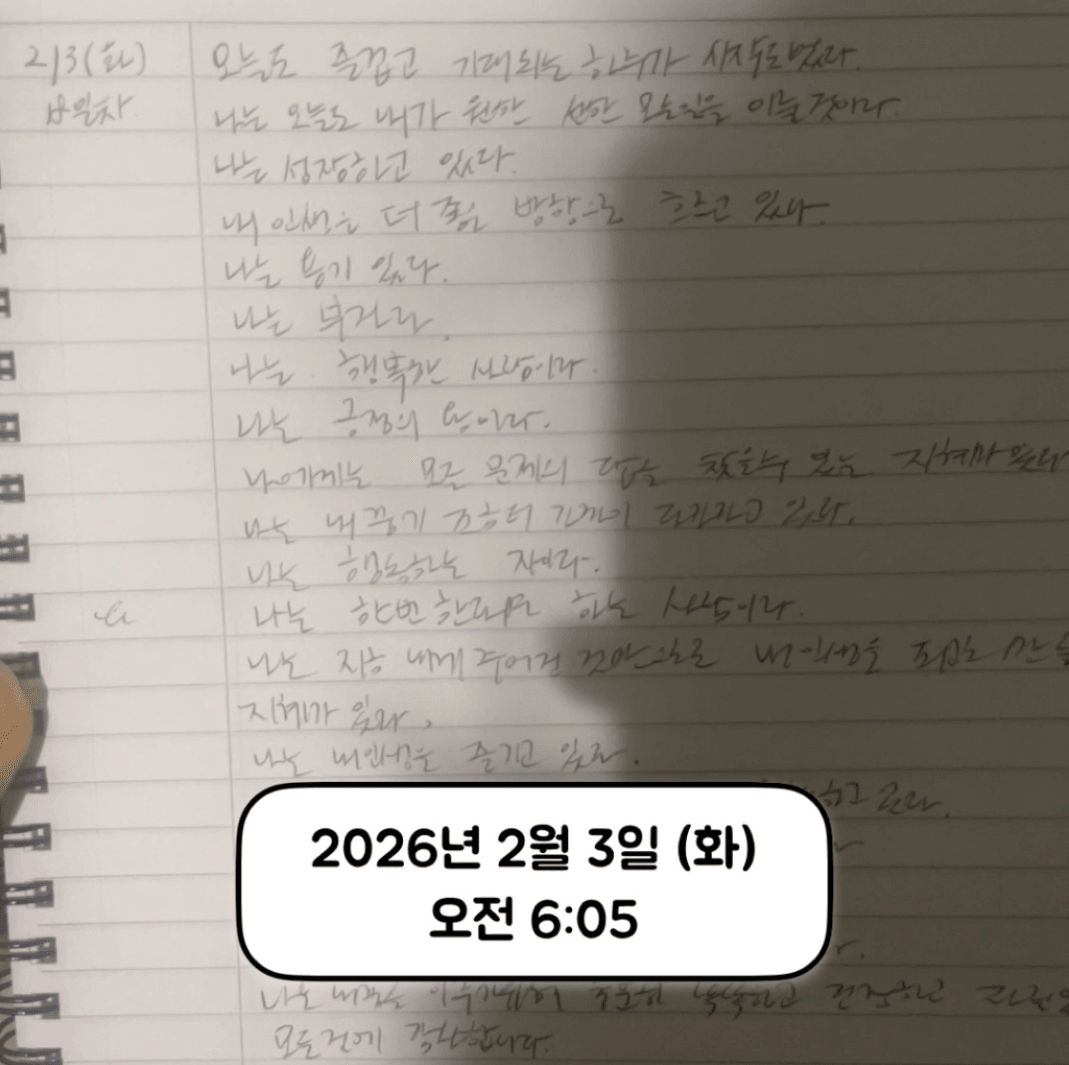 2/3(화)
오늘도 즐겁고 기대되는 하루가 시작되었다.
일차
나는 오늘도 내가 원한 선한 모든일을 이룰것이다.
나는 성장하고 있다.
내 인생은 더 좋은 방향으로 흐르고 있다.
나는 용기 있다.
나는 부자다.
나는 행복한 사람이다.
나는 긍정의 왕이다.
나에게는 모든 문제의 답을 찾을수 있는 지혜가 있다
나는 내 꿈이 있다.
나는 행동하는 자이다.
나는 한번 한다면 하는 사람이다.
나는 지금 내게 주어진 것만으로 내 인생을
지혜가 있다.
나는 내인생을 즐기고 있다.
하고
2026년 2월 3일 (화)
오전 6:05
나는 충분히 똑똑하고 건강하고
모든것에 감사합니다.